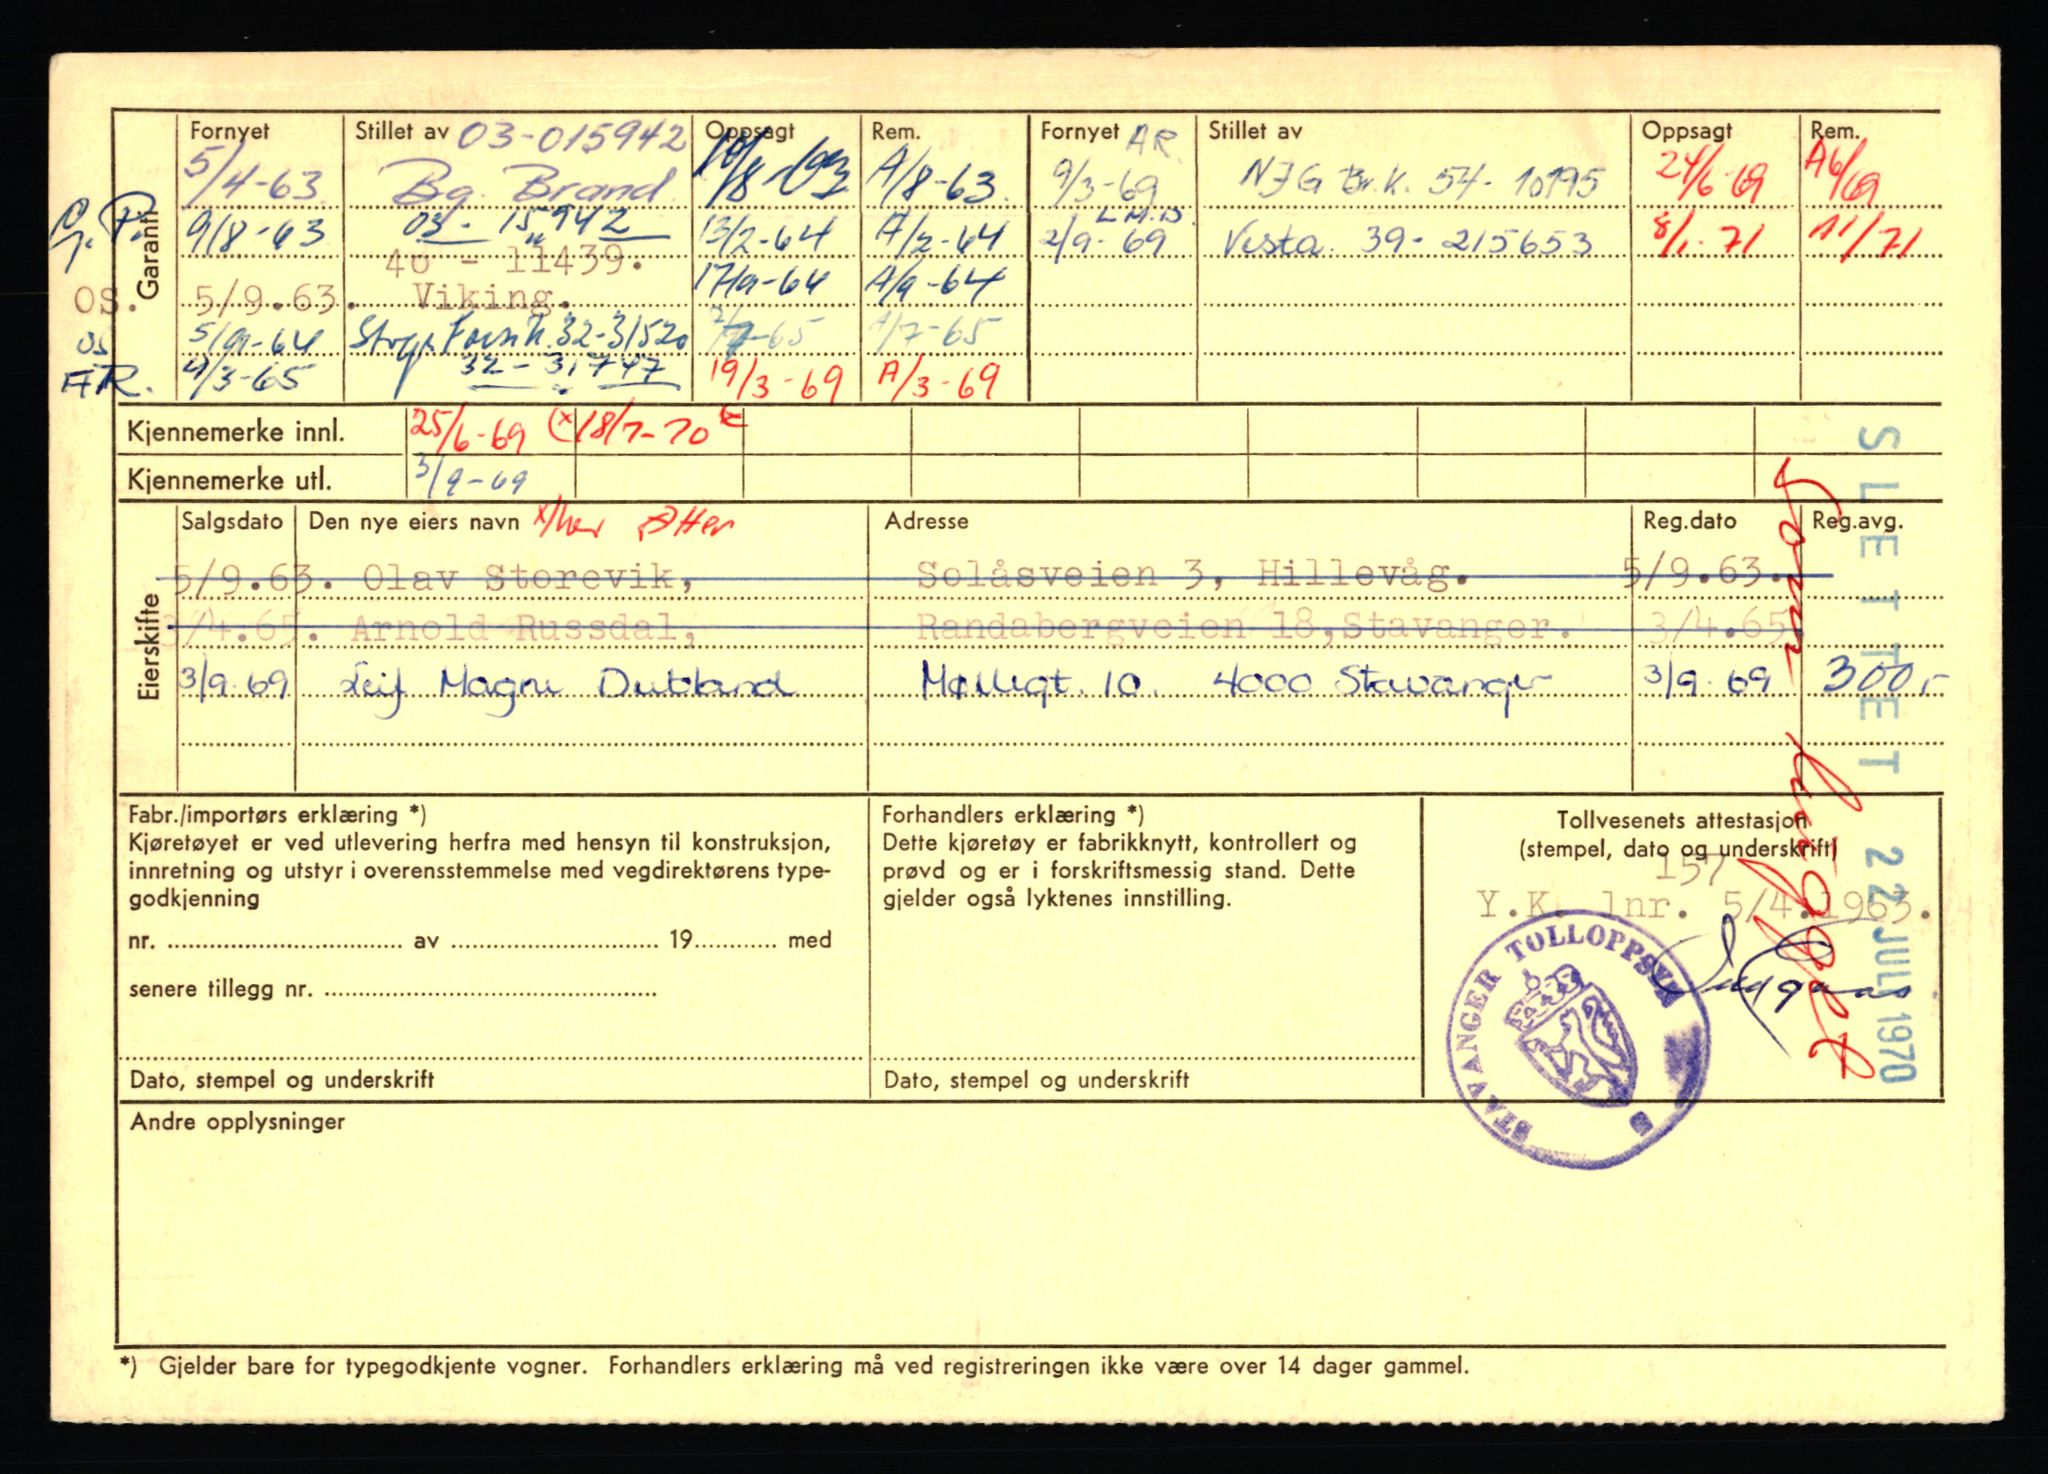 Garanti
Fornyet Stillet av 03-015942 Oppsagt Rem. Fornyet AR. Stillet av Oppsagt Rem.
5/4-63 Bg. Brand A/8-63. 9/3-69 54-10195 24/6-69 A6/69
9/8-63 03-15942 13/2-64 A/2-64 L.M.D. 2/9-69 Vesta 39-215653 8/1-71 A1/71
40 - 11439. 17/9-64 A/9-64
OS. 5/9.63. Viking.
OS 5/9-64 32-31520 A/7-65
AR. 4/3-65 32-31747 19/3-69 A/3-69
Kjennemerke innl. 25/6-69 (x 18/7-70
Kjennemerke utl. 3/9-69
Eierskifte
Salgsdato Den nye eiers navn Adresse Reg.dato Reg.avg.
5/9.63. Olav Storevik, Solåsveien 3, Hillevåg. 5/9.63.
3/4.65. Arnold Russdal, Randabergveien 18,Stavanger. 3/4.65.
3/9.69 Leif Magne Dubland Møllegt. 10. 4000 Stavanger 3/9.69 300,-
SLETTET
22 JULI 1970
Fabr./importørs erklæring *)
Kjøretøyet er ved utlevering herfra med hensyn til konstruksjon,
innretning og utstyr i overensstemmelse med vegdirektørens type-
godkjenning
nr. av 19 med
senere tillegg nr.
Dato, stempel og underskrift
Forhandlers erklæring *)
Dette kjøretøy er fabrikknytt, kontrollert og
prøvd og er i forskriftsmessig stand. Dette
gjelder også lyktenes innstilling.
Dato, stempel og underskrift
Tollvesenets attestasjon
(stempel, dato og underskrift)
157
Y.K. lnr. 5/4.1963.
STAVANGER TOLLOPPSYN
B
Andre opplysninger
*) Gjelder bare for typegodkjente vogner. Forhandlers erklæring må ved registreringen ikke være over 14 dager gammel.